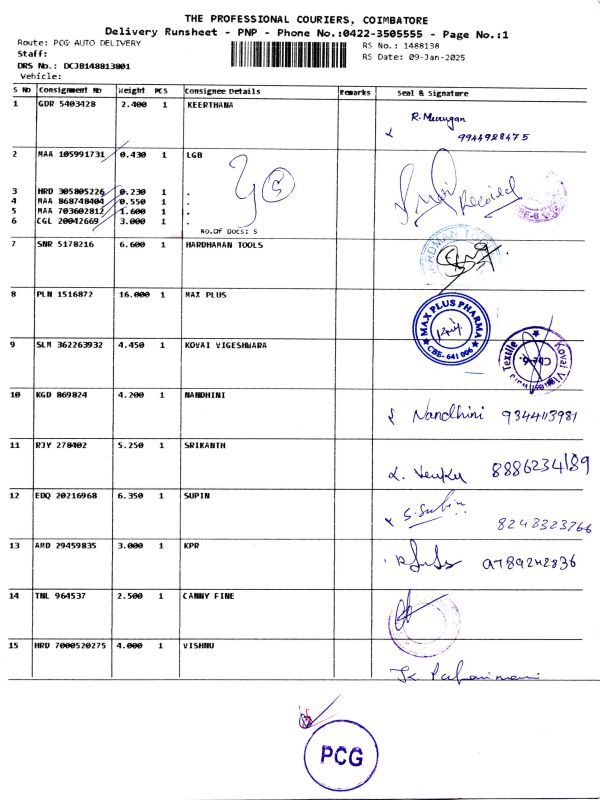 THE PROFESSIONAL COURIERS, COIMBATORE
Delivery Runsheet - PNP - Phone No.:0422-3505555 - Page No.:1
Route: PCG AUTO DELIVERY
RS No.: 1488138
Staff:
RS Date: 09-Jan-2025
DRS No.: DCJB148813801
Vehicle:
S No Consignment No Weight PCS Consignee Details Remarks Seal & Signature
1 GDR 5403428 2.400 1 KEERTHANA
R. Murugan
9944928475
2 MAA 105991731 0.430 1 LGB
5
Received
3 HRD 305805226 0.230 1 .
4 MAA 868748404 0.550 1 .
5 MAA 703602812 1.600 1 .
6 CGL 20042669 3.000 1 .
NO.OF DOCS: 5
7 SNR 5178216 6.600 1 HARDHAMAN TOOLS
8 PLN 1516872 16.000 1 MAX PLUS
MAX PLUS PHARMA
CBE- 641 006
9 SLM 362263932 4.450 1 KOVAI VIGESHWARA
Kovai
Textile
10 KGD 869824 4.200 1 NANDHINI
Nandhini 9344113981
11 RJY 278402 5.250 1 SRIKANTH
Venku 8886234189
12 EDQ 20216968 6.350 1 SUPIN
S. Subin
8248323766
13 AMD 29459835 3.000 1 KPR
9789242836
14 TNL 964537 2.500 1 CANNY FINE
15 HRD 7000520275 4.000 1 VISHNU
PCG